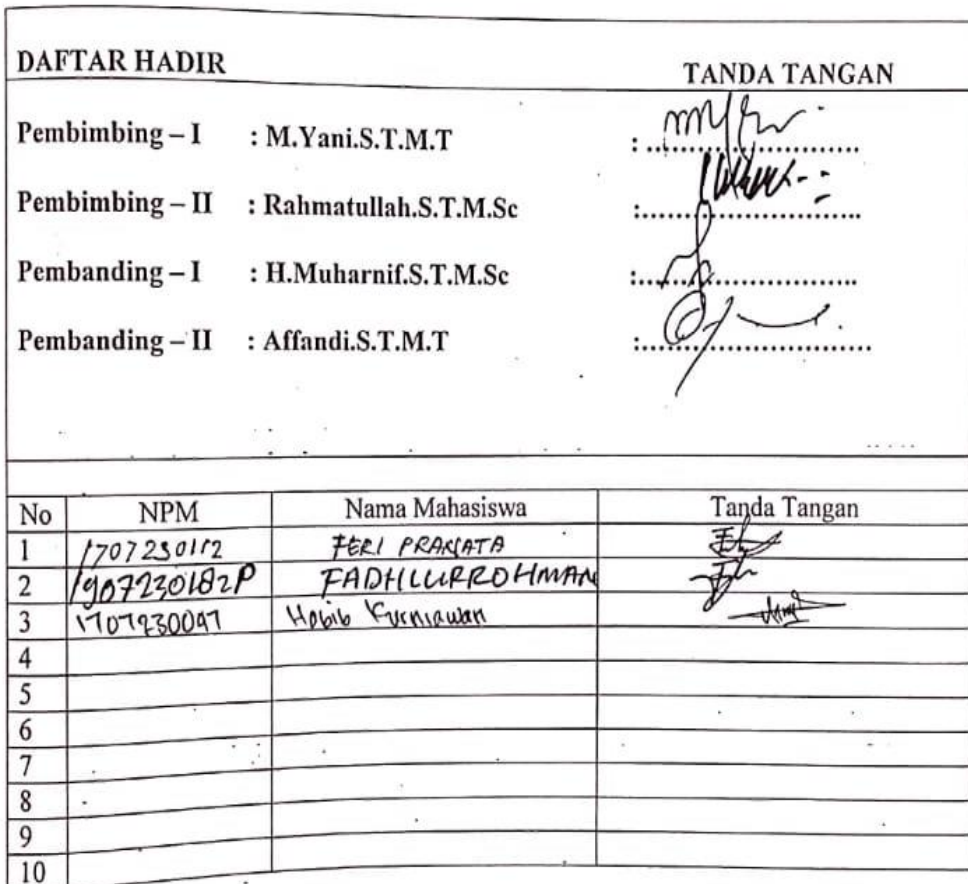 DAFTAR HADIR TANDA TANGAN
Pembimbing – I : M.Yani.S.T.M.T : ........................
Pembimbing – II : Rahmatullah.S.T.M.Sc :........................
Pembanding – I : H.Muharnif.S.T.M.Sc :........................
Pembanding – II : Affandi.S.T.M.T :........................
No NPM Nama Mahasiswa Tanda Tangan
1 1707230112 FERI PRANATA
2 1907230182P FADHLURROHMAN
3 1707230047 Habib Kurniawan
4
5
6
7
8
9
10